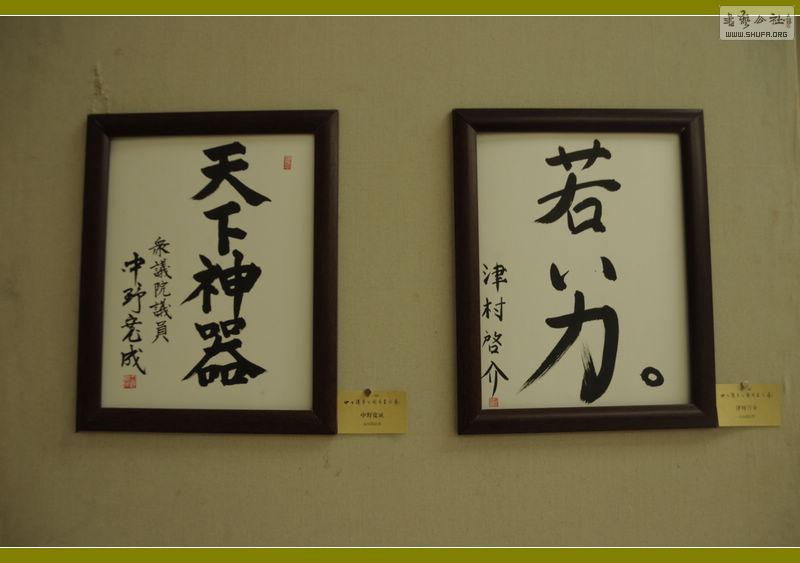 書藝公社
WWW.SHUFA.ORG
天下神器
衆議院議員
中野寛成
若い力。
津村啓介
中野寛成